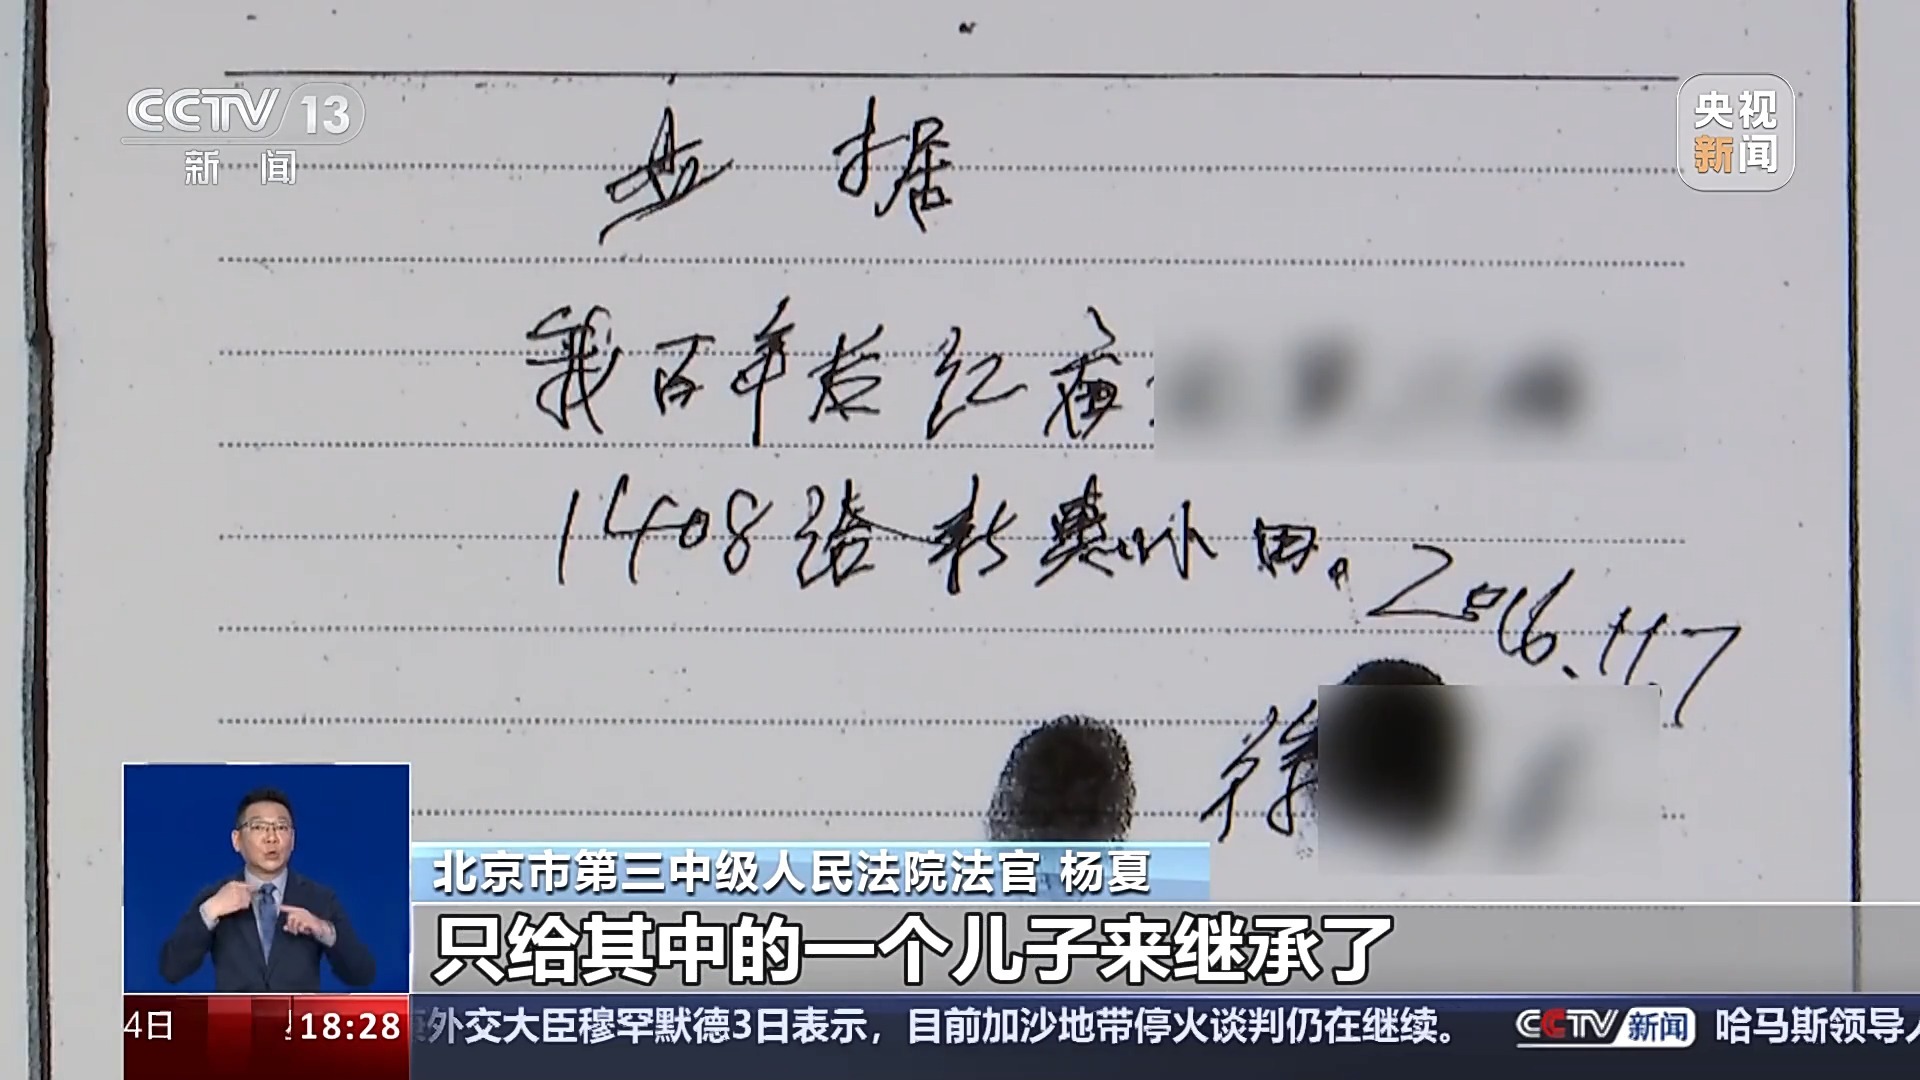 CCTV 13
新闻
央视
新闻
字据
我百年后红庙
1408给新惠小田。
2016.11.7
徐
北京市第三中级人民法院法官 杨夏
只给其中的一个儿子来继承了
4日
18:28
外交大臣穆罕默德3日表示，目前加沙地带停火谈判仍在继续。
CCTV 新闻
哈马斯领导